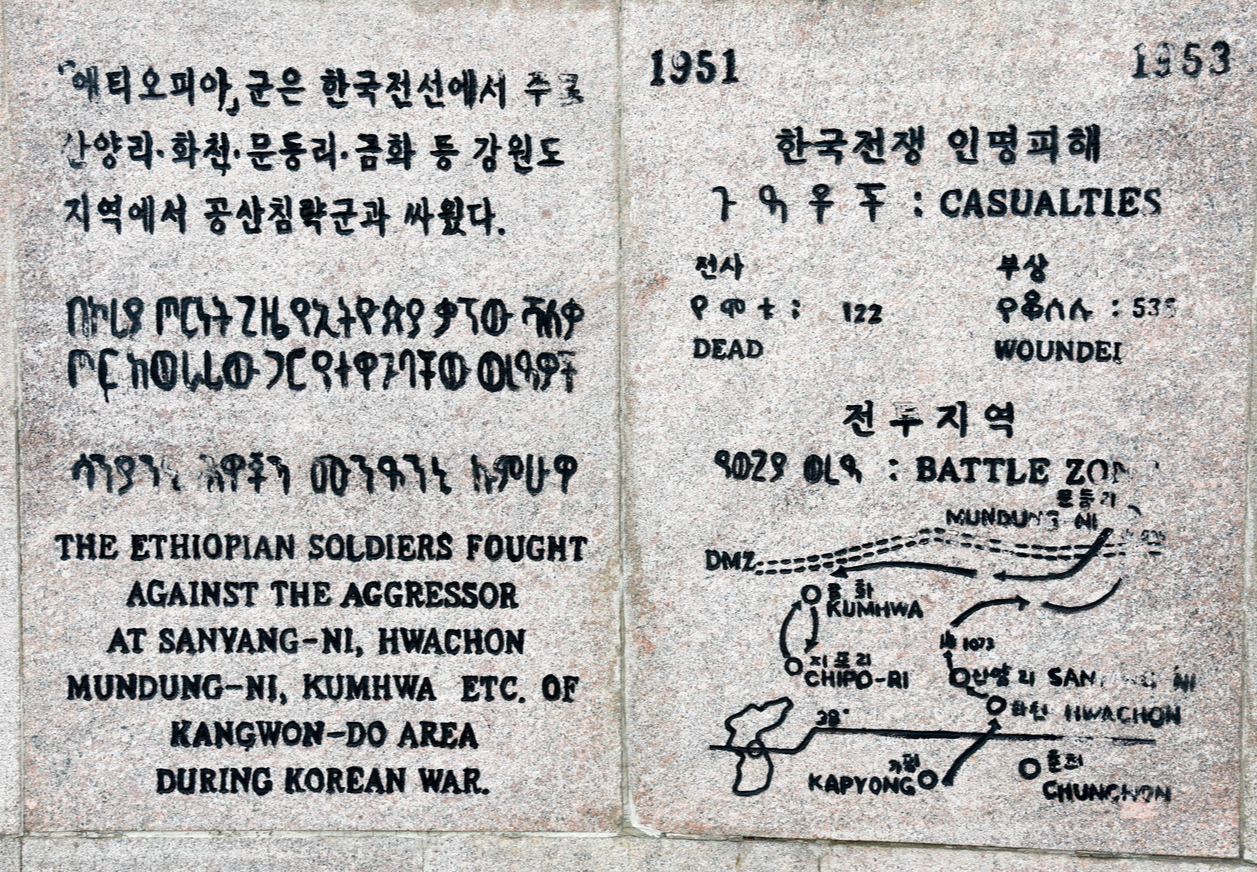 「에티오피아」군은 한국전선에서 주로
산양리·화천·문등리·금화 등 강원도
지역에서 공산침략군과 싸웠다.
በኮሪያ ጦርነት ጊዜ የኢትዮጵያ
ጦር ከወራሪው ጋር
THE ETHIOPIAN SOLDIERS FOUGHT
AGAINST THE AGGRESSOR
AT SANYANG-NI, HWACHON
MUNDUNG-NI, KUMHWA ETC. OF
KANGWON-DO AREA
DURING KOREAN WAR.
1951 1953
한국전쟁 인명피해
: CASUALTIES
전사 부상
የሞተ : 122
የቆሰለ :
DEAD
전투지역
: BATTLE
문등리
MUNDUNG NI
DMZ
금화
KUMHWA
1073
지포리
CHIPO-RI
산양리
화천 HWACHON
38°
가평
KAPYONG
춘천
CHUNCHON